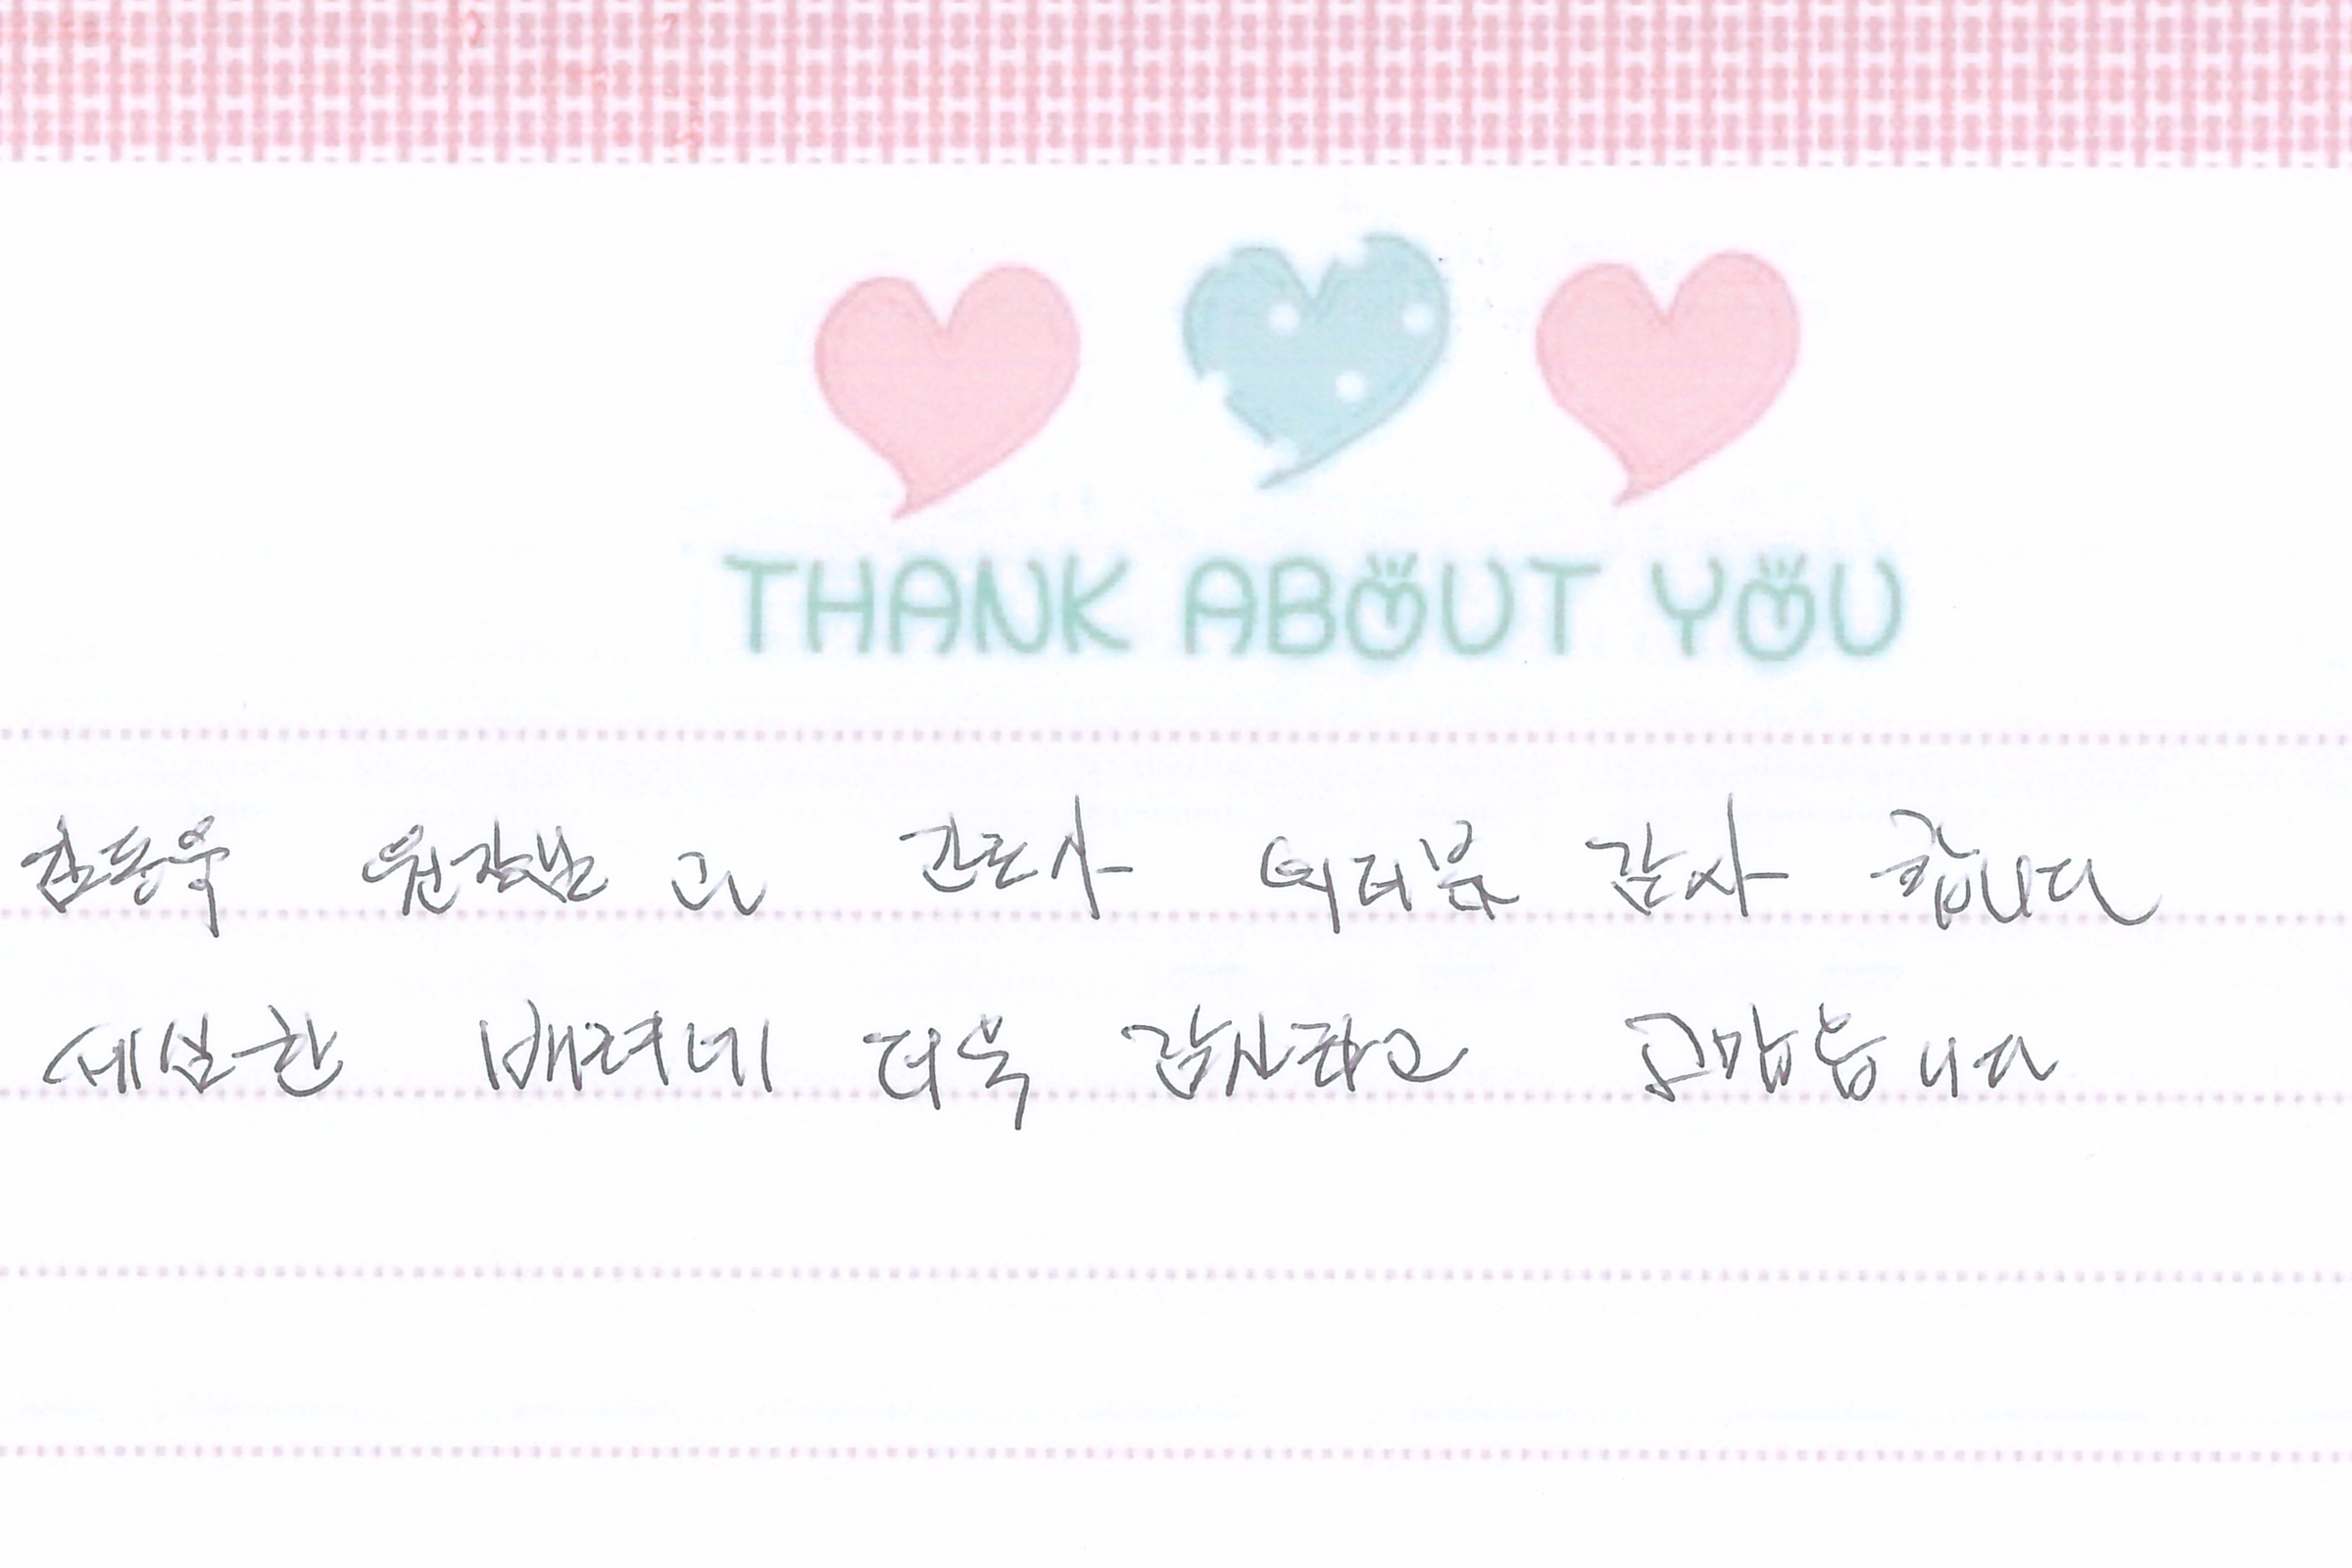 THANK ABOUT YOU
김동욱 원장님 과 간호사 여러분 감사 합니다
세심한 배려네 더욱 감사하고 고맙습니다